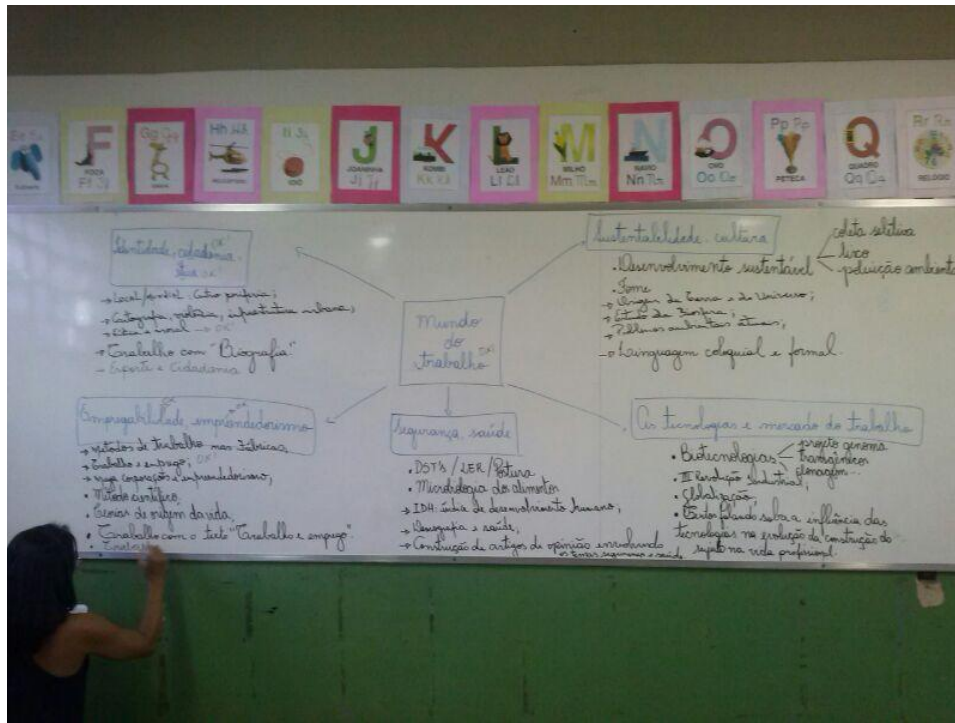 F
FOCA
Gg
Hh
HELICÓPTERO
IOIÔ
J
JOANINHA
K
KOMBI
L
LEÃO
M
MILHO
Mm
N
NAVIO
Nn
O
OVO
Oo
Pp
PETECA
Q
QUADRO
Qq
Rr
RELÓGIO
Identidade, cidadania,
ética OK!
→ Local/mundial: Centro periferia;
→ Cartografia, moradia, infraestrutura urbana;
→ Ética e moral → OK!
→ Trabalho com "Biografia".
- Esporte e Cidadania
Sustentabilidade, cultura
• Desenvolvimento sustentável
coleta seletiva
lixo
poluição ambiental
• Fome
→ Origem da Terra e do Universo;
→ Estudo da Biosfera;
→ Problemas ambientais atuais;
→ Linguagem coloquial e formal.
Mundo
do
trabalho OK!
Empregabilidade, emprendedorismo
OK
→ Métodos de trabalho nas Fábricas,
→ Trabalho e emprego; OK!
→ corporações e empreendedorismo;
• Método científico,
• Teorias de origem da vida,
• Trabalho com o texto "Trabalho e emprego".
• Trabalho
Segurança, saúde
• DST's / LER / Postura
• Microbiologia dos alimentos
→ IDH: índice de desenvolvimento humano;
→ Demografia e saúde;
→ Construção de artigos de opinião envolvendo
os temas segurança e saúde
As tecnologias e mercado do trabalho
• Biotecnologias
projeto genoma
transgênicos
clonagem...
• III Revolução Industrial;
• Globalização;
• Texto falando sobre a influência das
tecnologias na evolução da construção do
sujeito na vida profissional.